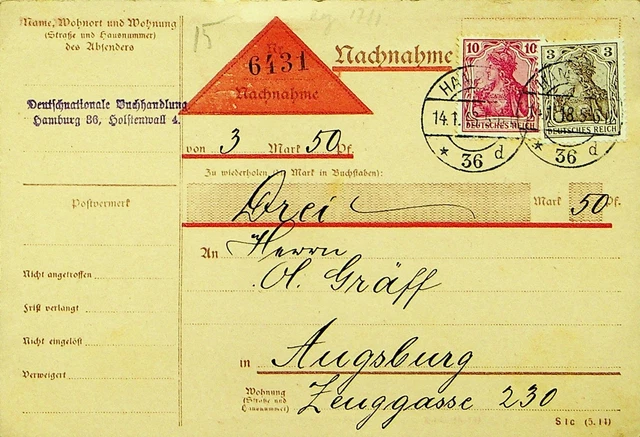 Name, Wohnort und Wohnung
(Straße und Hausnummer)
des Absenders
Deutschnationale Buchhandlung
Hamburg 36, Holstenwall 4.
15
Nr.
6431
Nachnahme
Nachnahme
10 10
DEUTSCHES REICH
3 3
DEUTSCHES REICH
HAM
14.1.
* 36 d
18
* 36 d
von 3 Mark 50 Pf.
Zu wiederholen (die Mark in Buchstaben):
Drei Mark 50 Pf.
An Herrn
Gräff
in Augsburg
Wohnung
(Straße und
Hausnummer)
Zeuggasse 230
Postvermerk
Nicht angetroffen
Frist verlangt
Nicht eingelöst
Verweigert
S l c (5. 14)